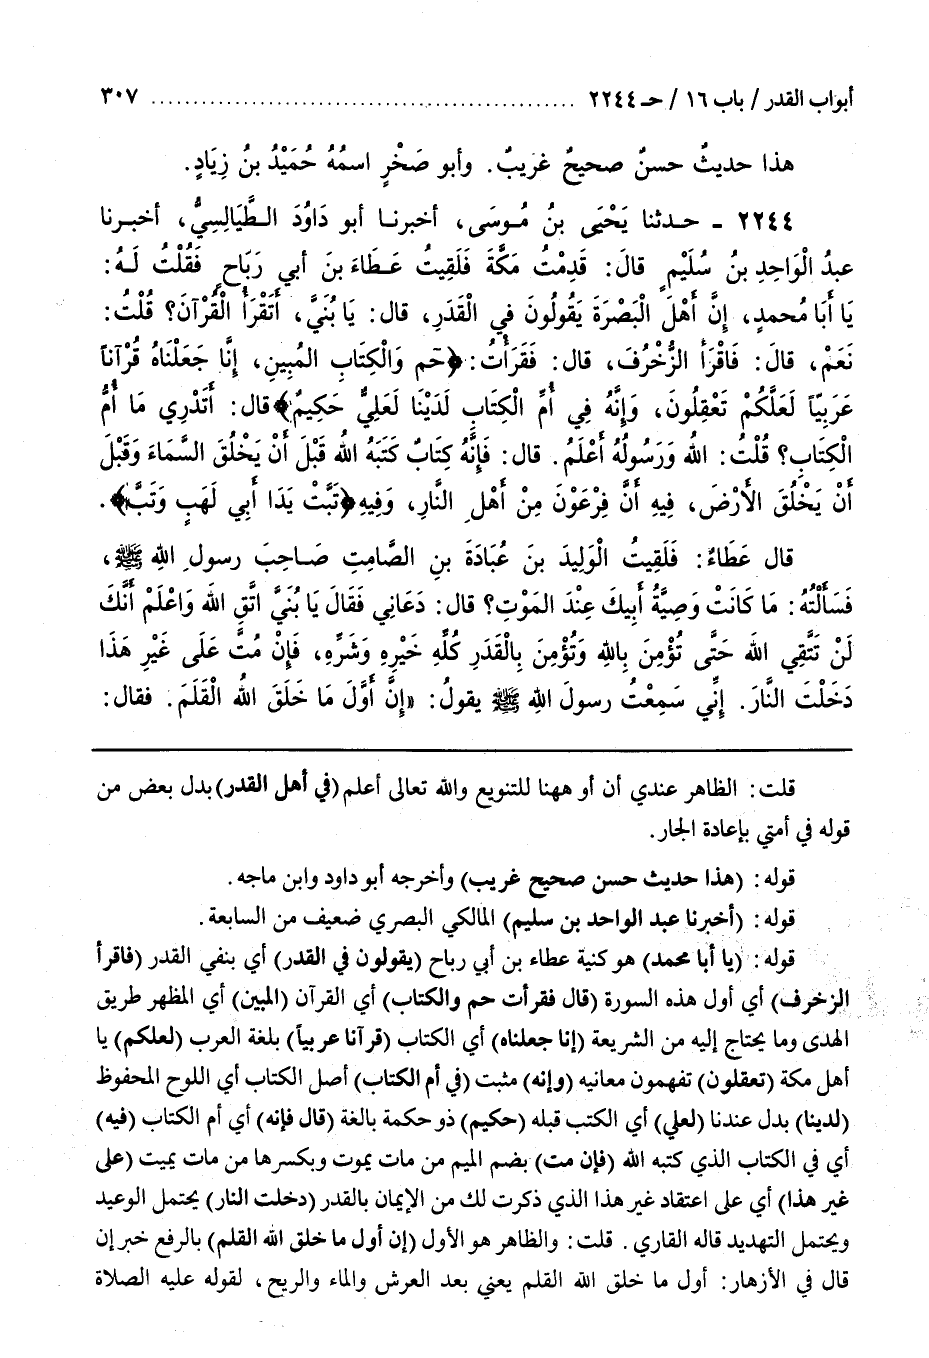 أبواب القدر / باب ١٦ / حـ ٢٢٤٤ ................................................ ٣٠٧
هذا حديثٌ حسنٌ صحيحٌ غَرِيبٌ. وأبو صَخْرٍ اسمُهُ حُمَيْدُ بنُ زِيَادٍ.
٢٢٤٤ ـ حدثنا يَحْيَى بنُ مُوسَى، أخبرنا أبو دَاوُدَ الطَّيَالِسِيُّ، أخبرنا
عبدُ الْوَاحِدِ بنُ سُلَيْمٍ قالَ: قَدِمْتُ مَكَّةَ فَلَقِيتُ عَطَاءَ بنَ أبي رَبَاحٍ فَقُلْتُ لَهُ:
يَا أبَا مُحمدٍ، إنَّ أهْلَ الْبَصْرَةَ يَقُولُونَ في الْقَدَرِ، قال: يَا بُنَيَّ، أتَقْرَأُ الْقُرْآنَ؟ قُلْتُ:
نَعَمْ، قالَ: فَاقْرَأ الزُّخْرُفَ، قال: فَقَرَأْتُ: ﴿حَم وَالْكِتَابِ المُبِينِ، إنَّا جَعَلْنَاهُ قُرْآناً
عَرَبِيّاً لَعَلَّكُمْ تَعْقِلُونَ، وَإنَّهُ فِي أُمِّ الْكِتَابِ لَدَيْنَا لَعَلِيٌّ حَكِيمٌ﴾ قال: أتَدْرِي مَا أُمُّ
الْكِتَابِ؟ قُلْتُ: الله وَرَسُولُهُ أعْلَمُ. قال: فَإنَّهُ كِتَابٌ كَتَبَهُ الله قَبْلَ أنْ يَخْلُقَ السَّمَاءَ وَقَبْلَ
أنْ يَخْلُقَ الأَرْضَ، فِيهِ أنَّ فِرْعَوْنَ مِنْ أهْلِ النَّارِ، وَفِيهِ ﴿تَبَّتْ يَدَا أبِي لَهَبٍ وَتَبَّ﴾.
قال عَطَاءٌ: فَلَقِيتُ الْوَلِيدَ بنَ عُبَادَةَ بنِ الصَّامِتِ صَاحِبَ رسولِ الله ﷺ،
فَسَأَلْتُهُ: مَا كَانَتْ وَصِيَّةُ أبِيكَ عِنْدَ المَوْتِ؟ قال: دَعَانِي فَقَالَ يَا بُنَيَّ اتَّقِ الله وَاعْلَمْ أنَّكَ
لَنْ تَتَّقِي الله حَتَّى تُؤْمِنَ بِالله وَتُؤْمِنَ بِالْقَدَرِ كُلِّهِ خَيْرِهِ وَشَرِّهِ، فَإنْ مُتَّ عَلَى غَيْرِ هَذَا
دَخَلْتَ النَّارَ. إنِّي سَمِعْتُ رسولَ الله ﷺ يقولُ: «إنَّ أوَّلَ مَا خَلَقَ الله الْقَلَمَ. فقال:
قلت: الظاهر عندي أن أو ههنا للتنويع والله تعالى أعلم (في أهل القدر) بدل بعض من
قوله في أمتي بإعادة الجار.
قوله: (هذا حديث حسن صحيح غريب) وأخرجه أبو داود وابن ماجه.
قوله: (أخبرنا عبد الواحد بن سليم) المالكي البصري ضعيف من السابعة.
قوله: (يا أبا محمد) هو كنية عطاء بن أبي رباح (يقولون في القدر) أي بنفي القدر (فاقرأ
الزخرف) أي أول هذه السورة (قال فقرأت حم والكتاب) أي القرآن (المبين) أي المظهر طريق
الهدى وما يحتاج إليه من الشريعة (إنا جعلناه) أي الكتاب (قرآنا عربياً) بلغة العرب (لعلكم) يا
أهل مكة (تعقلون) تفهمون معانيه (وإنه) مثبت (في أم الكتاب) أصل الكتاب أي اللوح المحفوظ
(لدينا) بدل عندنا (لعلي) أي الكتب قبله (حكيم) ذو حكمة بالغة (قال فإنه) أي أم الكتاب (فيه)
أي في الكتاب الذي كتبه الله (فإن مت) بضم الميم من مات يموت وبكسرها من مات يميت (على
غير هذا) أي على اعتقاد غير هذا الذي ذكرت لك من الإيمان بالقدر (دخلت النار) يحتمل الوعيد
ويحتمل التهديد قاله القاري. قلت: والظاهر هو الأول (إن أول ما خلق الله القلم) بالرفع خبر إن
قال في الأزهار: أول ما خلق الله القلم يعني بعد العرش والماء والريح، لقوله عليه الصلاة